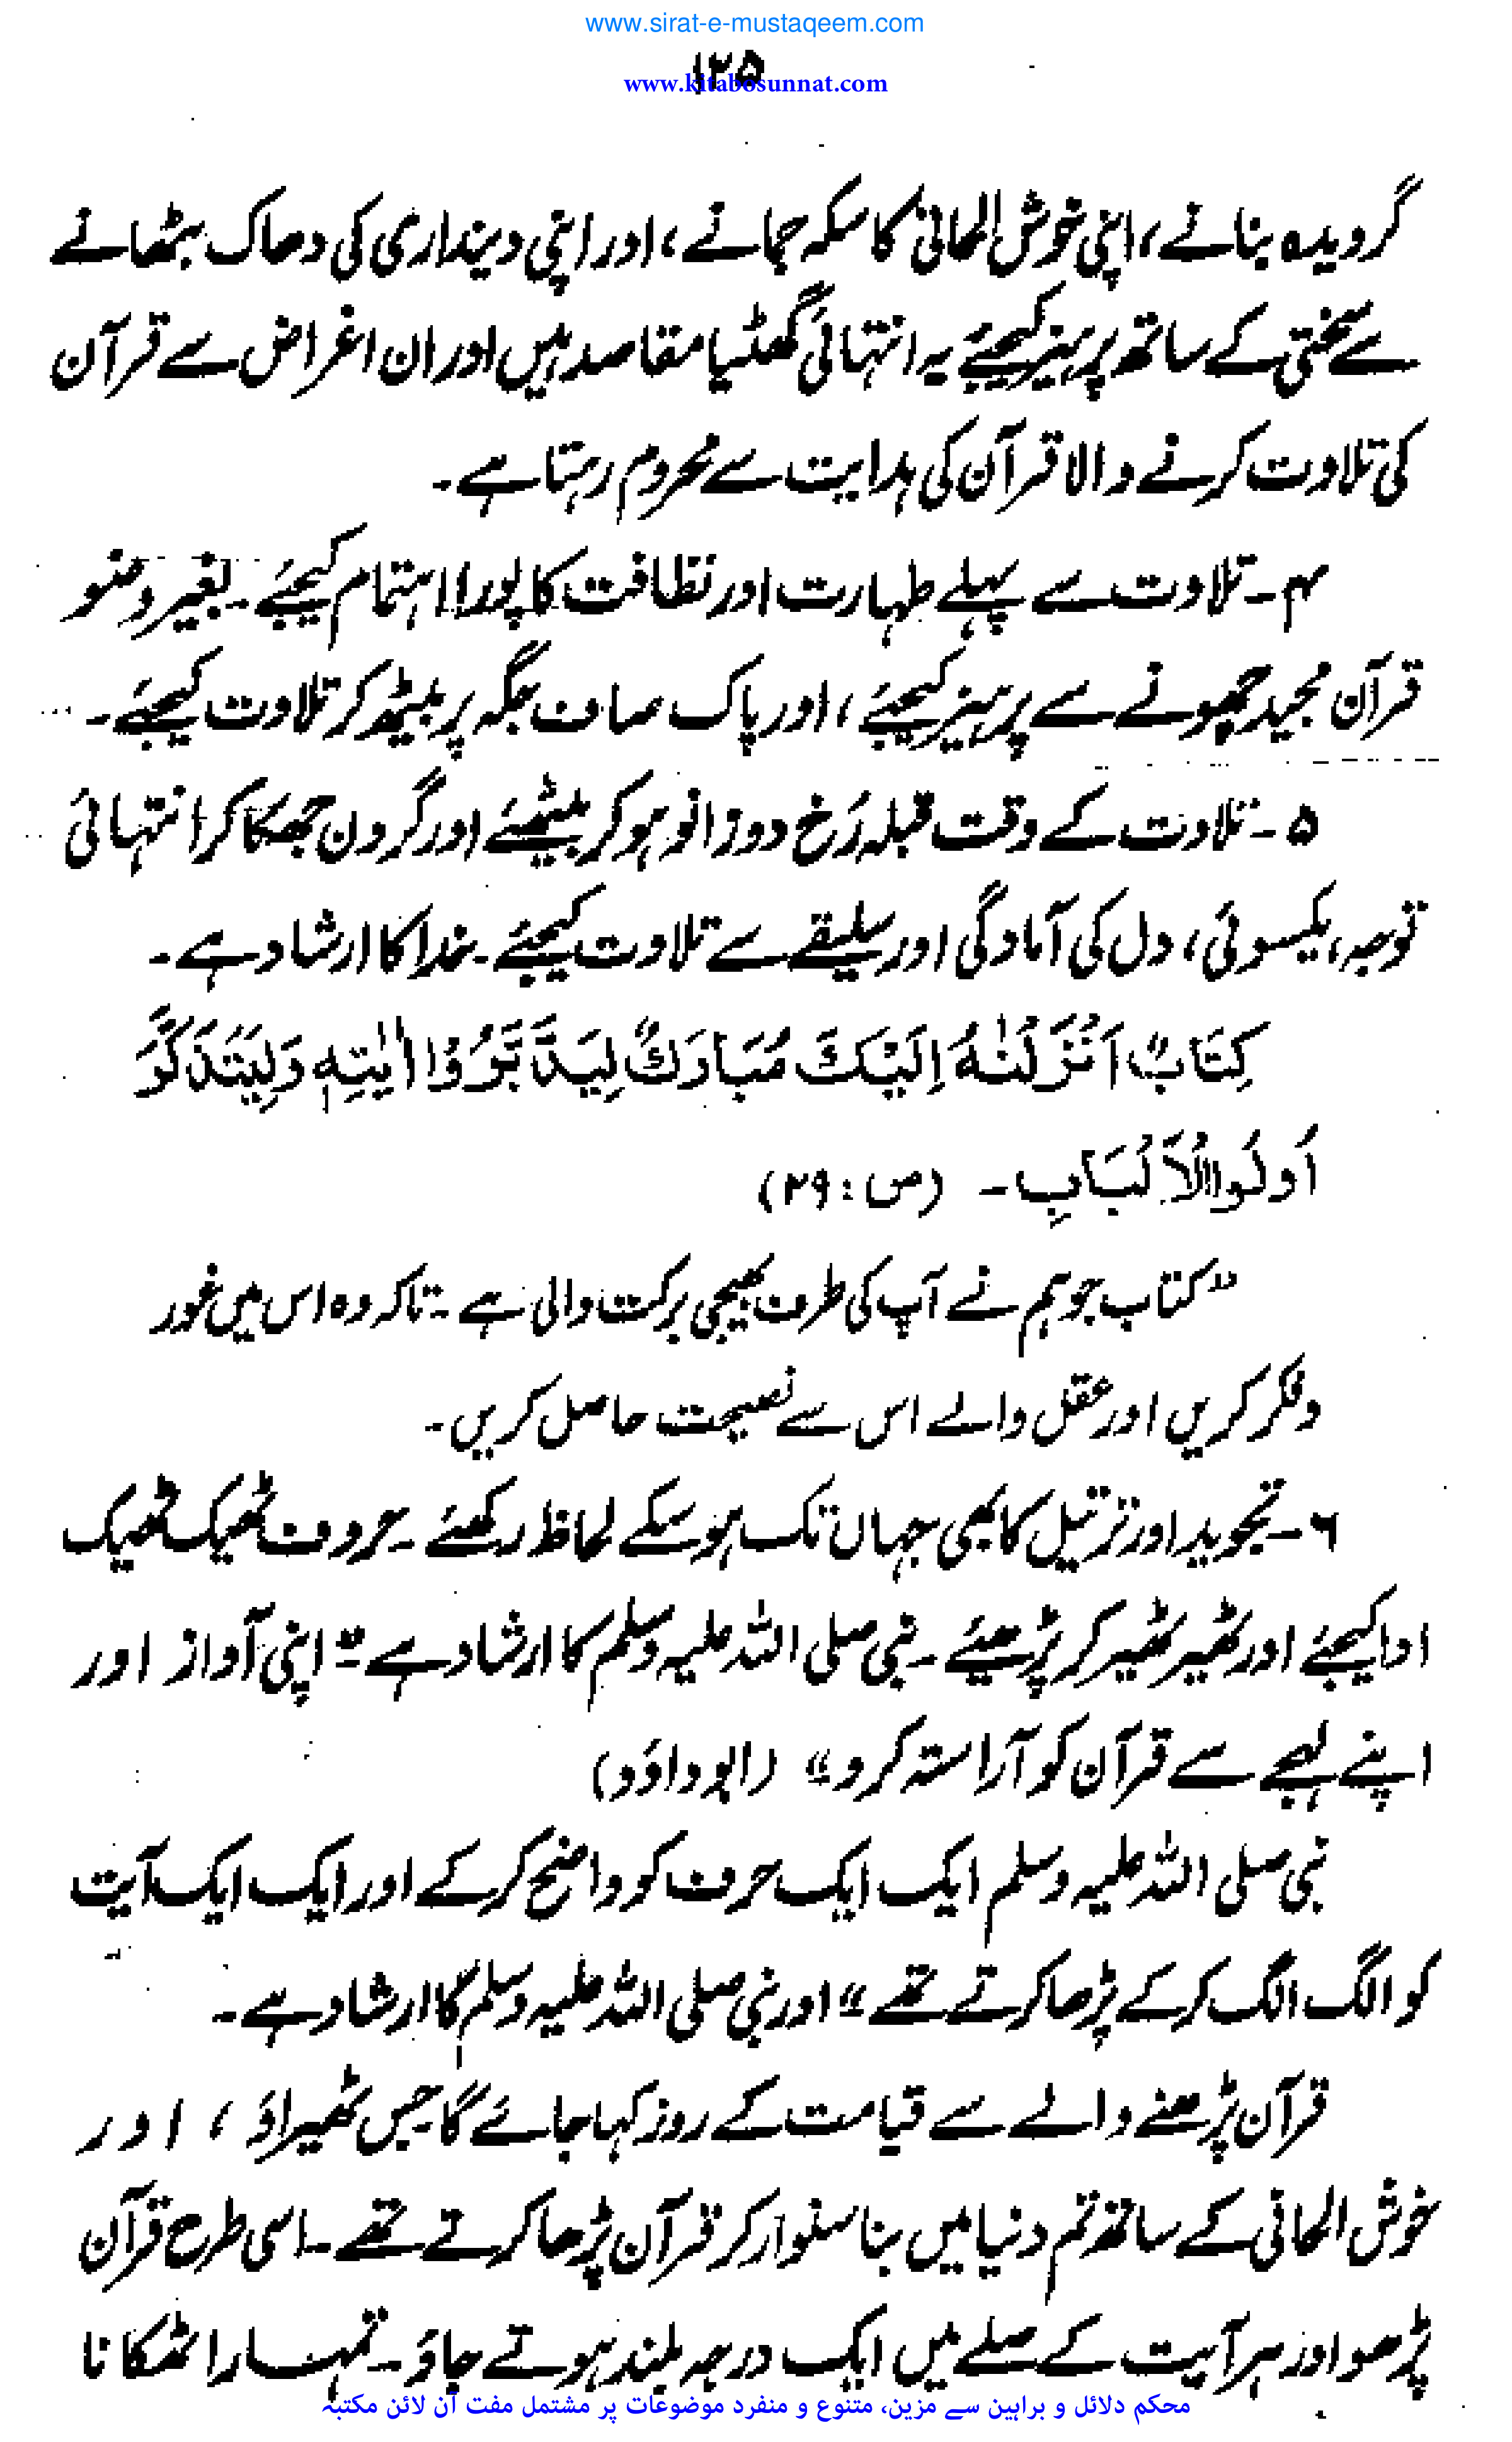 www.sirat-e-mustaqeem.com
۱۲۵
www.kitabosunnat.com
گرویدہ بنانے، اپنی خوش الحانی کا سکہ جمانے، اور اپنی دینداری کی دھاک بٹھانے
سے سختی کے ساتھ پرہیز کیجیے یہ انتہائی گھٹیا مقاصد ہیں اور ان اغراض سے قرآن
کی تلاوت کرنے والا قرآن کی ہدایت سے محروم رہتا ہے۔
۴۔ تلاوت سے پہلے طہارت اور نظافت کا پورا اہتمام کیجیے۔ بغیر وضو
قرآن مجید چھونے سے پرہیز کیجیے، اور پاک صاف جگہ پر بیٹھ کر تلاوت کیجیے۔
۵۔ تلاوت کے وقت قبلہ رُخ دوزانو ہو کر بیٹھئے اور گردن جھکا کر انتہائی
توجہ، یکسوئی، دل کی آمادگی اور سلیقے سے تلاوت کیجیے۔ خدا کا ارشاد ہے۔
كِتَابٌ اَنْزَلْنٰهُ اِلَيْكَ مُبَارَكٌ لِيَدَّبَّرُوْا اٰيٰتِهٖ وَلِيَتَذَكَّرَ
اُولُوا الْاَلْبَابِ۔ (ص: ۲۹)
”کتاب جو ہم نے آپ کی طرف بھیجی برکت والی ہے۔ تاکہ وہ اس میں غور
وفکر کریں اور عقل والے اس سے نصیحت حاصل کریں۔
۶۔ تجوید اور ترتیل کا بھی جہاں تک ہو سکے لحاظ رکھئے۔ حروف ٹھیک ٹھیک
ادا کیجئے اور ٹھیر ٹھیر کر پڑھیئے۔ نبی صلی اللہ علیہ وسلم کا ارشاد ہے ”اپنی آواز اور
اپنے لہجے سے قرآن کو آراستہ کرو“ (ابوداؤد)
نبی صلی اللہ علیہ وسلم ایک ایک حرف کو واضح کرکے اور ایک ایک آیت
کو الگ الگ کرکے پڑھا کرتے تھے“ اور نبی صلی اللہ علیہ وسلم کا ارشاد ہے۔
قرآن پڑھنے والے سے قیامت کے روز کہا جائے گا جس ٹھیراؤ، اور
خوش الحانی کے ساتھ تم دنیا میں بنا سنوار کر قرآن پڑھا کرتے تھے۔ اسی طرح قرآن
پڑھو اور ہر آیت کے صلے میں ایک درجہ بلند ہوتے جاؤ۔ تمہارا ٹھکانا
محکم دلائل و براہین سے مزین، متنوع و منفرد موضوعات پر مشتمل مفت آن لائن مکتبہ